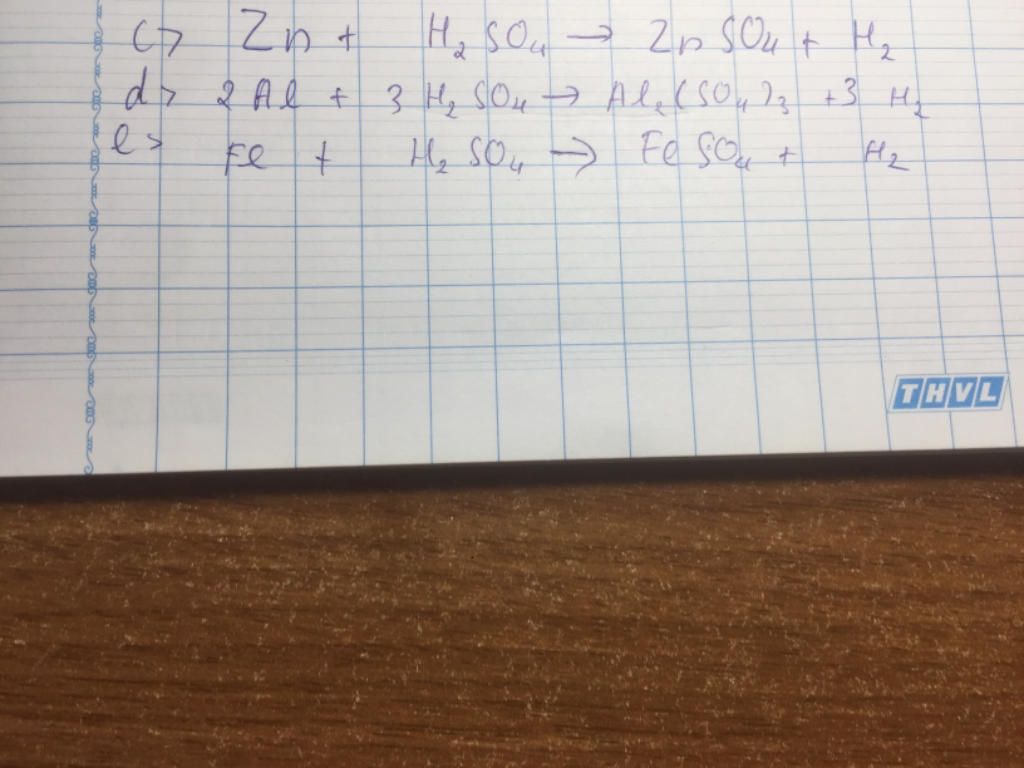 c> Zn + H₂SO₄ → ZnSO₄ + H₂
d> 2Al + 3H₂SO₄ → Al₂(SO₄)₃ + 3H₂
e> Fe + H₂SO₄ → FeSO₄ + H₂
THVL